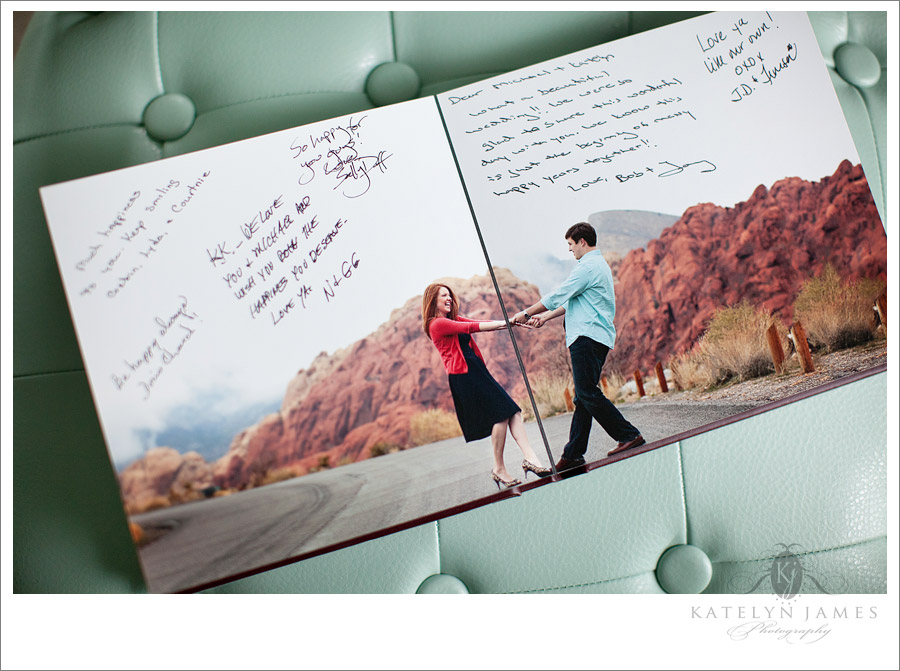 Much happiness
to you. Keep smiling
Courtnie
Be happy always
So happy for
you guys!
KK - WE LOVE
YOU & MICHAEL AND
WISH YOU BOTH THE
HAPPINESS YOU DESERVE.
LOVE YA N & GG
Dear Michael + Katelyn
What a beautiful
wedding!! We were so
glad to share this wonderful
day with you. We know this
is just the beginning of many
happy years together!!
Love, Bob +
Love ya
like our own!
OXOX
J.D. &
KJ
KATELYN JAMES
Photography